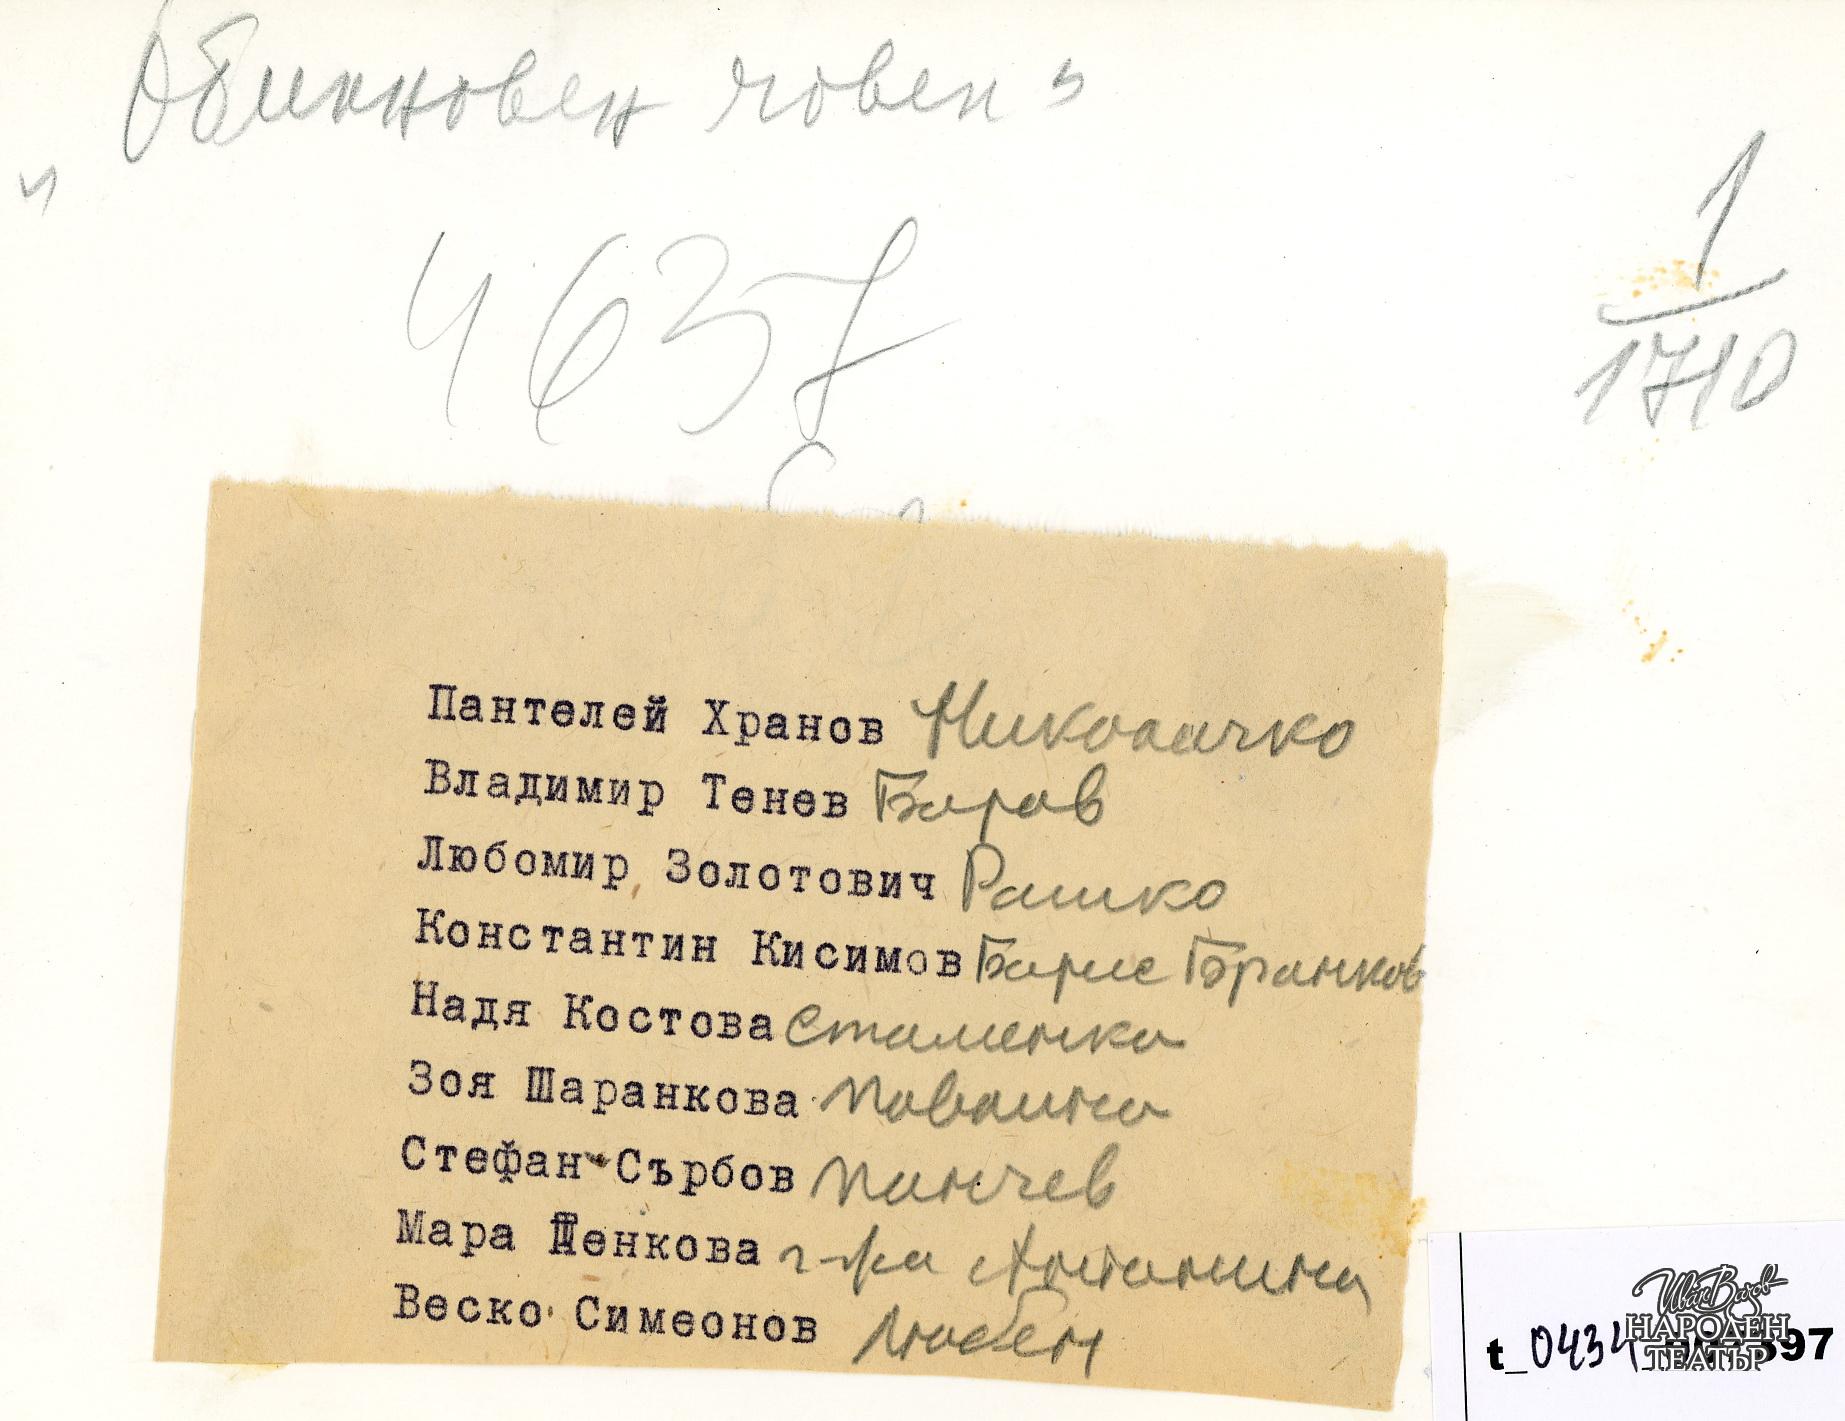 „Обикновен човек"
4637
1
1710
Пантелей Хранов Николачко
Владимир Тенев Боров
Любомир Золотович Рашко
Константин Кисимов Борис Бранков
Надя Костова Стаменка
Зоя Шаранкова Паволина
Стефан Сърбов Панчев
Мара Пенкова г-жа Антонина
Веско Симеонов Любен
Иван Вазов
НАРОДЕН
t_0434 97
ТЕАТЪР